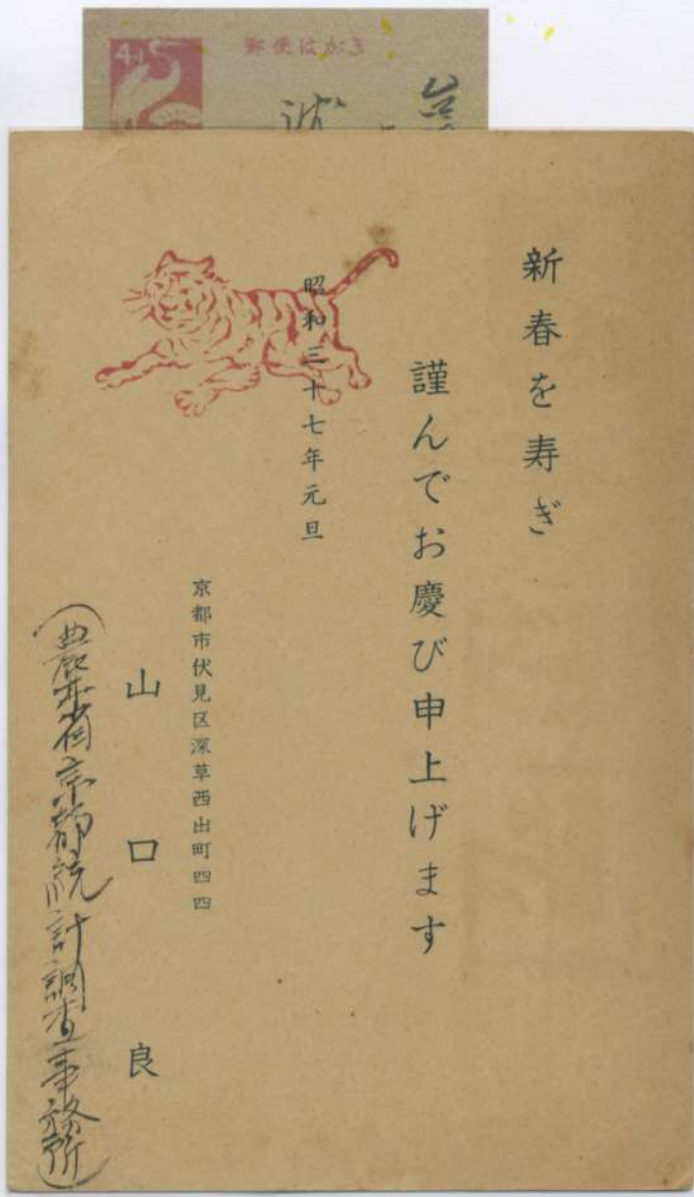 郵便はがき
新春を寿ぎ
謹んでお慶び申上げます
昭和三十七年元旦
京都市伏見区深草西出町四四
山口良
(農林省京都統計調査事務所)